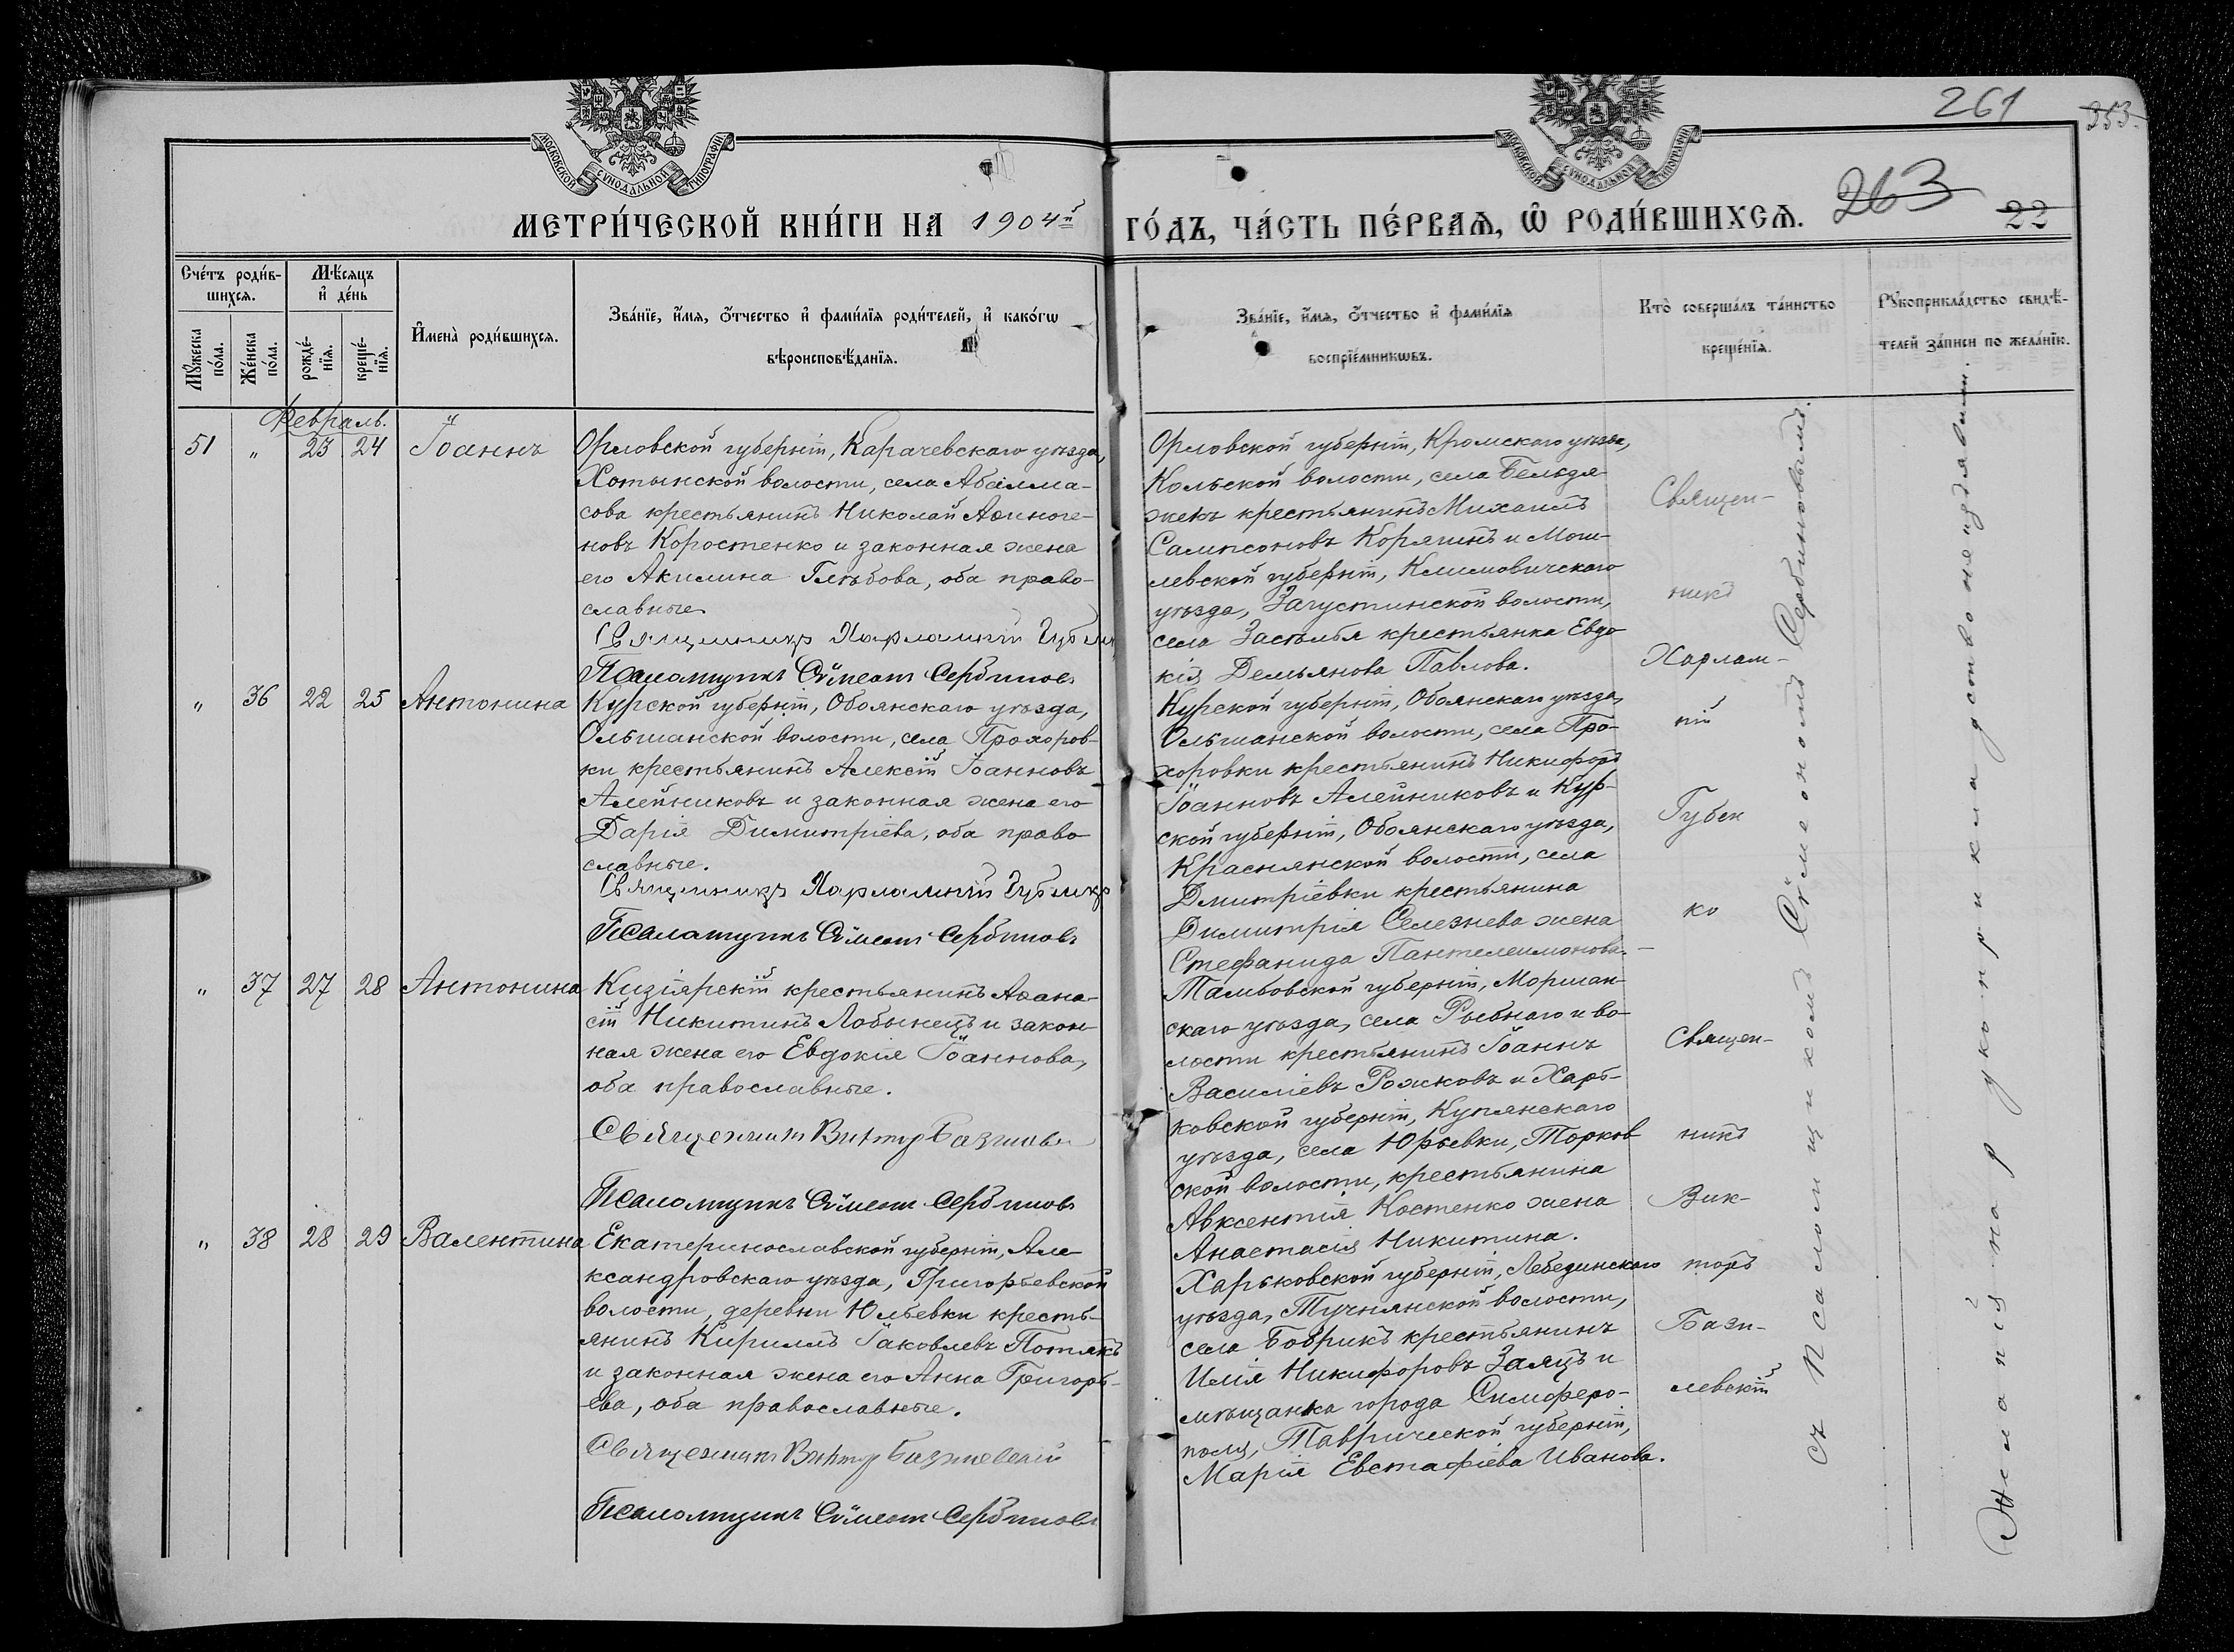 261
353
263
22
МОСКОВСКОЙ СѴНОДАЛЬНОЙ ТИПОГРАФІИ
МОСКОВСКОЙ СѴНОДАЛЬНОЙ ТИПОГРАФІИ
МЕТРИ́ЧЕСКОЙ КНИ́ГИ НА 1904й ГО́ДЪ, ЧА́СТЬ ПЕ́РВАѦ, Ѽ РОДИ́ВШИХСѦ.
Сче́тъ роди́в-
шихсѧ.
Мѣ́сяцъ
и҆ де́нь
Мꙋ́жеска по́ла.
Же́нска по́ла.
рожде́-
нїѧ.
креще́-
нїѧ.
И҆мена̀ роди́вшихсѧ.
Зва́нїе, и҆́мѧ, ѻ҆́тчество и҆ фами́лїѧ роди́телей, и҆ како́гѡ
вѣроисповѣ́данїѧ.
Зва́нїе, и҆́мѧ, ѻ҆́тчество и҆ фами́лїѧ
воспрїе́мникѡвъ.
Кто̀ соверша́лъ та́инство
креще́нїѧ.
Рꙋкоприкла́дство свидѣ́-
телей за́писи по жела́нїю.
Февраль.
51 " 23 24 Іоаннъ
Орловской губерніи, Карачевскаго уѣзда,
Хотынской волости, села Абалма-
сова крестьянинъ Николай Аѳиноге-
новъ Коростенко и законная жена
его Акилина Глѣбова, оба право-
славные
Священникъ Харлампій
Псаломщикъ Сѵмеонъ Сербиновъ
Орловской губерніи, Кромскаго уѣзда,
Кольской волости, села Бельдя-
жекъ крестьянинъ Михаилъ
Сампсоновъ Корягинъ и Моги-
левской губерніи, Климовичскаго
уѣзда, Загустинской волости,
села Застѣлья крестьянка Евдо-
кія Демьянова Павлова.
" 36 22 25 Антонина
Курской губерніи, Обоянскаго уѣзда,
Ольшанской волости, села Прохоров-
ки крестьянинъ Алексій Іоанновъ
Алейниковъ и законная жена его
Дарія Димитріева, оба право
славные.
Священникъ Харлампій Губенко
Псаломщикъ Сѵмеонъ Сербиновъ
Курской губерніи, Обоянскаго уѣзда,
Ольшанской волости, села Про-
хоровки крестьянинъ Никифоръ
Іоанновъ Алейниковъ и Кур-
ской губерніи, Обоянскаго уѣзда,
Краснянской волости, села
Дмитріевки крестьянина
Димитрія Селезнева жена
Стефанида Пантелеимонова.
Священ-
никъ
Харлам-
пій
Губен
ко
" 37 27 28 Антонина
Кизіярскій крестьянинъ Аѳана-
сій Никитинъ Лобынецъ и закон-
ная жена его Евдокія Іоаннова,
оба православные.
Священникъ Викторъ
Псаломщикъ Сѵмеонъ Сербиновъ
Тамбовской губерніи, Моршан-
скаго уѣзда, села Рыбнаго и во-
лости крестьянинъ Іоаннъ
Василіевъ Рожковъ и Харь-
ковской губерніи, Купянскаго
уѣзда, села Юрьевки, Торков
ской волости, крестьянина
Авксентія Костенко жена
Анастасія Никитина.
" 38 28 29 Валентина
Екатеринославской губерніи, Але-
ксандровскаго уѣзда, Григорьевской
волости, деревни Юльевки кресть-
янинъ Кириллъ Іаковлевъ Потякъ
и законная жена его Анна Григорь-
ева, оба православные.
Священникъ Викторъ Базилевскій
Псаломщикъ Сѵмеонъ Сербиновъ
Харьковской губерніи, Лебединскаго
уѣзда, Тучнянской волости,
села Бобрикъ крестьянинъ
Илія Никифоровъ Заяцъ и
мѣщанка города Симферо-
поля, Таврической губерніи,
Марія Евстафіева Иванова.
Священ-
никъ
Вик-
торъ
Бази-
левскій
съ Псаломщикомъ Сѵмеономъ Сербиновымъ.
Желанія на рукоприкладство не